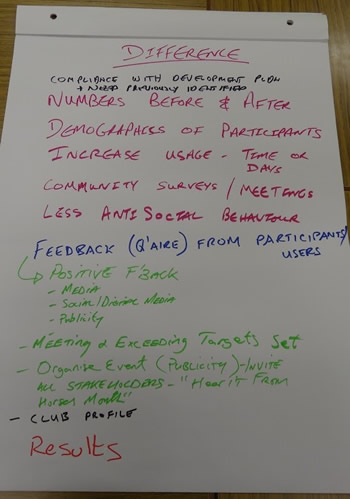 DIFFERENCE
COMPLIANCE WITH DEVELOPMENT PLAN
+ NEED PREVIOUSLY IDENTIFIED
NUMBERS BEFORE & AFTER
DEMOGRAPHICS OF PARTICIPANTS
INCREASE USAGE - TIME OR
DAYS
COMMUNITY SURVEYS / MEETINGS
LESS ANTI SOCIAL BEHAVIOUR
FEEDBACK (Q'AIRE) FROM PARTICIPANTS/
USERS
↳ POSITIVE F'BACK
- MEDIA
- Social/Digital Media
- Publicity
- MEETING & EXCEEDING TARGETS SET
- ORGANISE EVENT (PUBLICITY) - INVITE
ALL STAKEHOLDERS - "Hear it From
Horses Mouth"
- CLUB PROFILE
Results